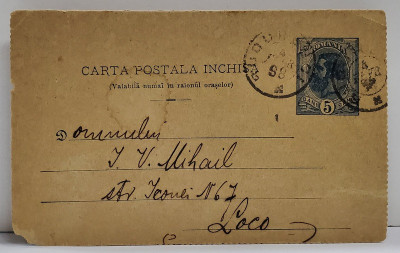 CARTA POSTALA INCHISA
(Valabilă numai în raionul orașelor)
ROMANIA
BANI 5
Domnului
I. V. Mihail
str. Icónei N 67
Loco